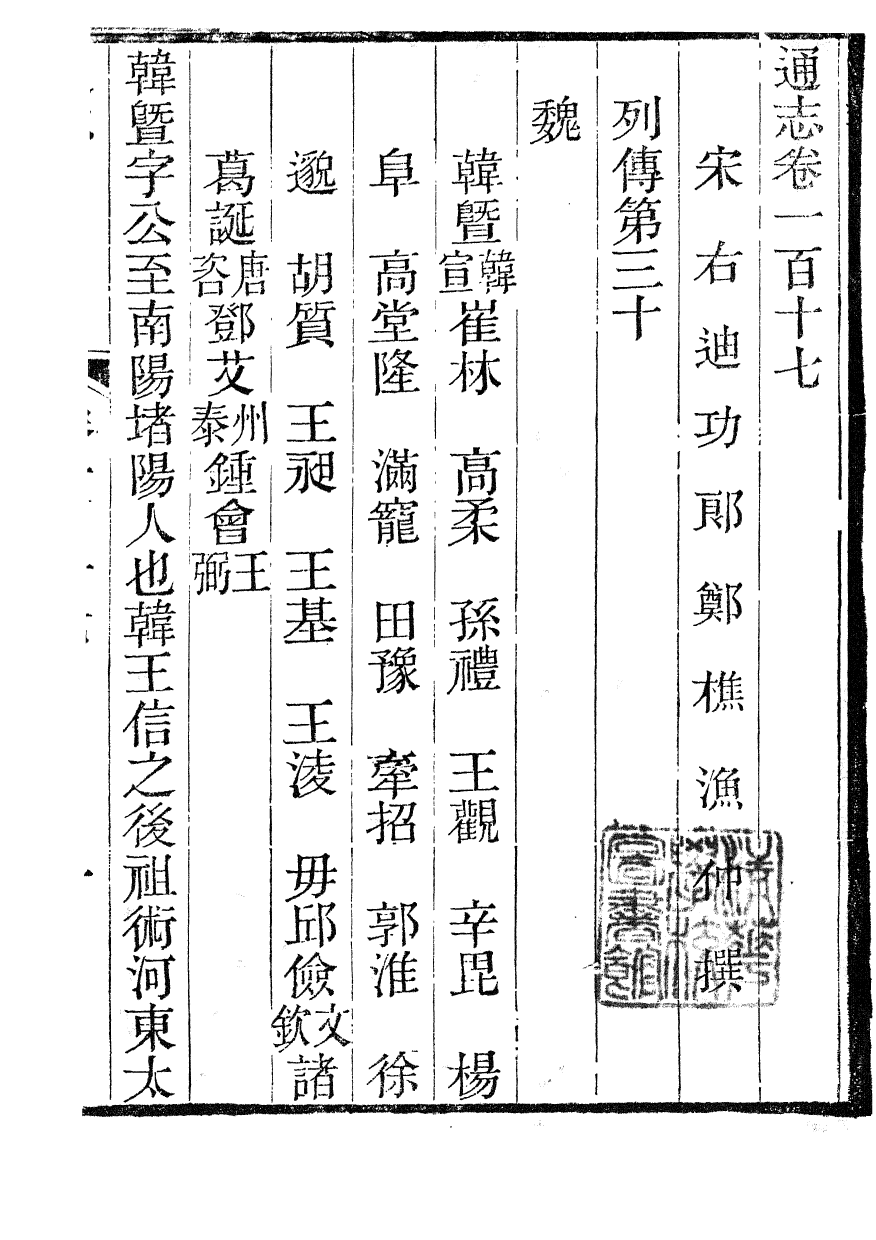 通志卷一百十七
宋右迪功郞鄭樵漁仲撰
列傳第三十
魏
韓曁韓宣崔林　高柔　孫禮　王觀　辛毘　楊
阜　高堂隆　滿寵　田豫　牽招　郭淮　徐
邈　胡質　王昶　王基　王淩　毋邱儉文欽諸
葛誕唐咨鄧艾州泰鍾會王弼
韓曁字公至南陽堵陽人也韓王信之後祖術河東太